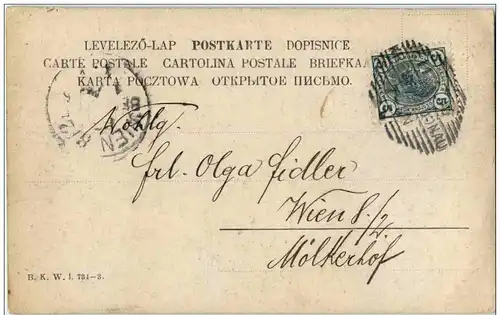 LEVELEZŐ-LAP POSTKARTE DOPISNICE
CARTE POSTALE CARTOLINA POSTALE BRIEFKAA
KARTA POCZTOWA ОТКРЫТОЕ ПИСЬМО.
5 5
WIEN
Wohlg.
Frl. Olga Fidler
Wien 8./2.
Mölkerhof
B. K. W. I. 784-3.